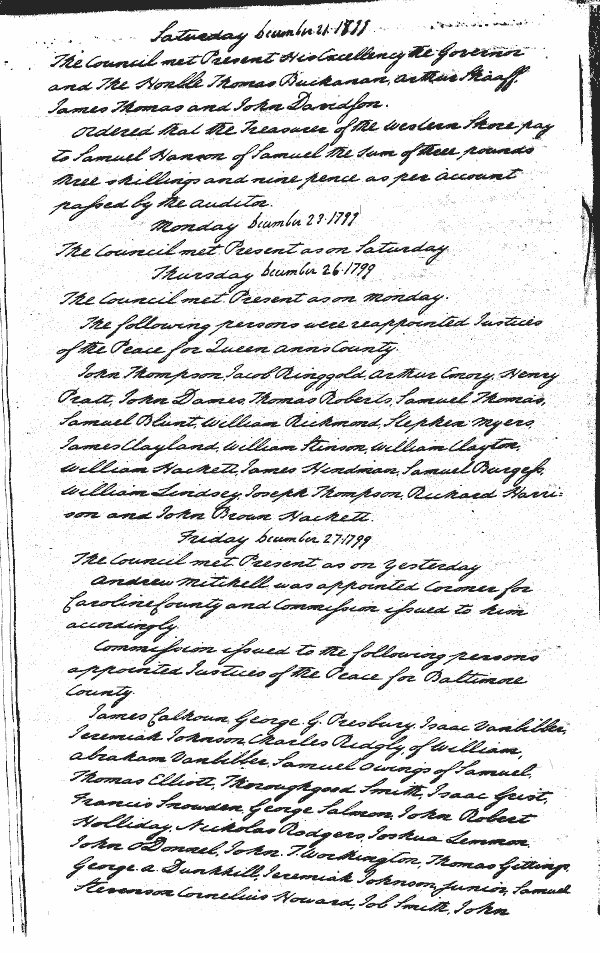 Saturday December 21. 1799
The Council met Present His Excellency the Governor
and The Honble Thomas Buchanan, Arthur Shaaff,
James Thomas and John Davidson.
Ordered that the Treasurer of the Western Shore pay
to Samuel Hanson of Samuel the sum of three pounds
three shillings and nine pence as per account
passed by the Auditor.
Monday December 23. 1799
The Council met Present as on Saturday
Thursday December 26. 1799
The Council met Present as on Monday.
The following persons were reappointed Justices
of the Peace for Queen Anns County.
John Thompson, Jacob Ringgold, Arthur Emory, Henry
Pratt, John Dames, Thomas Roberts, Samuel Thomas,
Samuel Blunt, William Richmond, Stephen Myers,
James Clayland, William Stinson, William Clayton,
William Hackett, James Hindman, Samuel Burgess,
William Lindsey, Joseph Thompson, Richard Harri-
son and John Brown Hackett.
Friday December 27. 1799
The Council met Present as on yesterday
Andrew Mitchell was appointed Coroner for
Caroline County and Commission issued to him
accordingly.
Commission issued to the following persons
appointed Justices of the Peace for Baltimore
County.
James Calhoun, George G. Presbury, Isaac Vanbibber,
Jeremiah Johnson, Charles Ridgly, of William,
Abraham Vanbibber, Samuel Owings of Samuel,
Thomas Elliott, Thoroughgood Smith, Isaac Grist,
Francis Snowden, George Salmon, John Robert
Holliday, Nicholas Rodgers, Joshua Lemmon,
John O Donnel, John T. Worthington, Thomas Gittings,
George A. Dunkhill, Jeremiah Johnson junior, Samuel
Stevenson Cornelius Howard, Job Smith, John